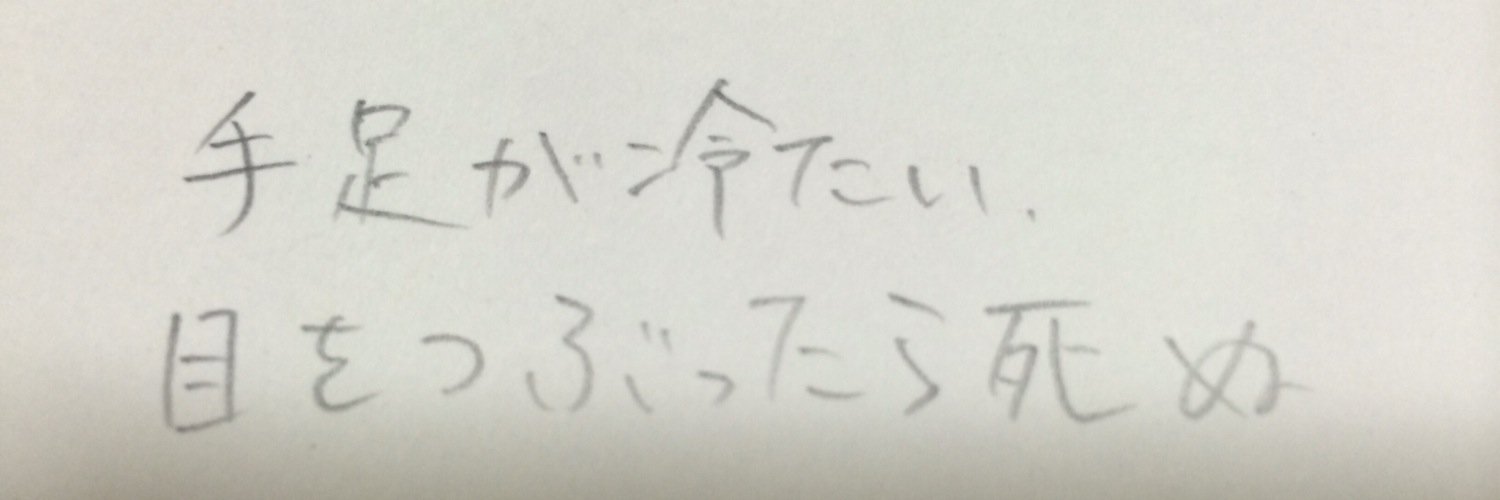 手足が冷たい.
目をつぶったら死ぬ